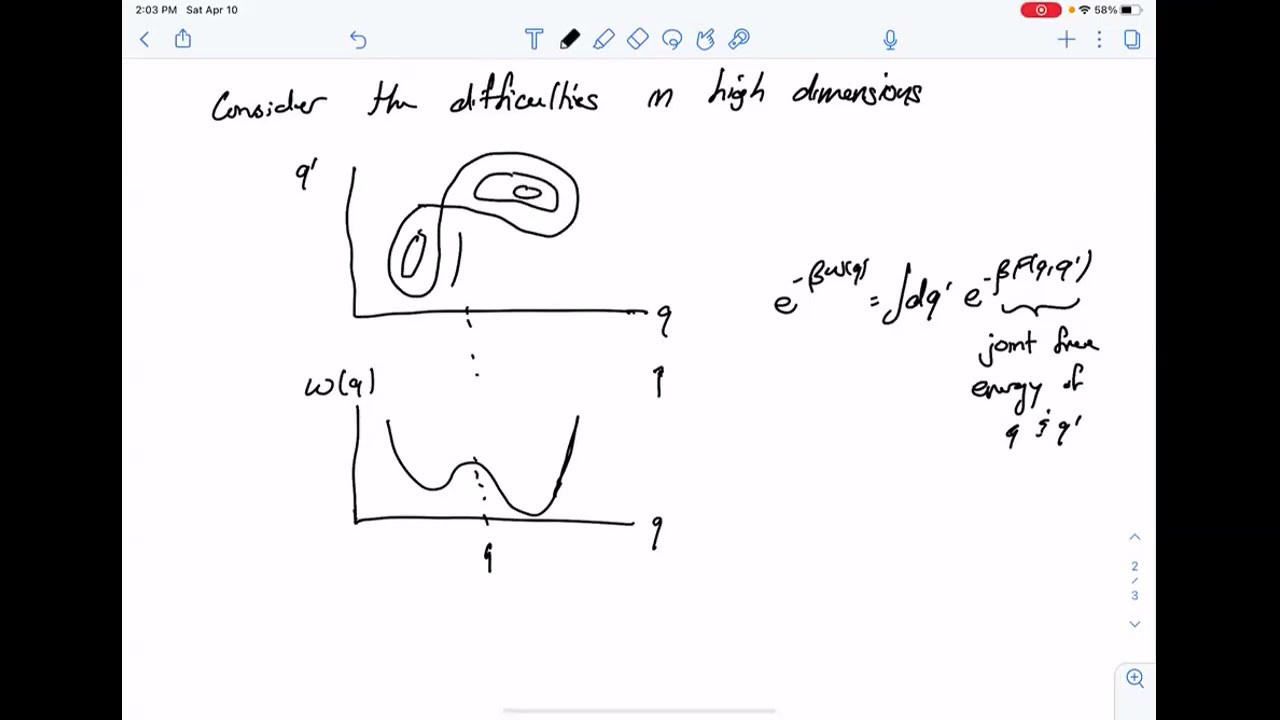 2:03 PM Sat Apr 10
58%
T
Consider the difficulties in high dimensions
q'
q
e^{-βw(q)} = ∫dq' e^{-βF(q,q')}
joint free
energy of
q & q'
w(q)
q
q
2
/
3